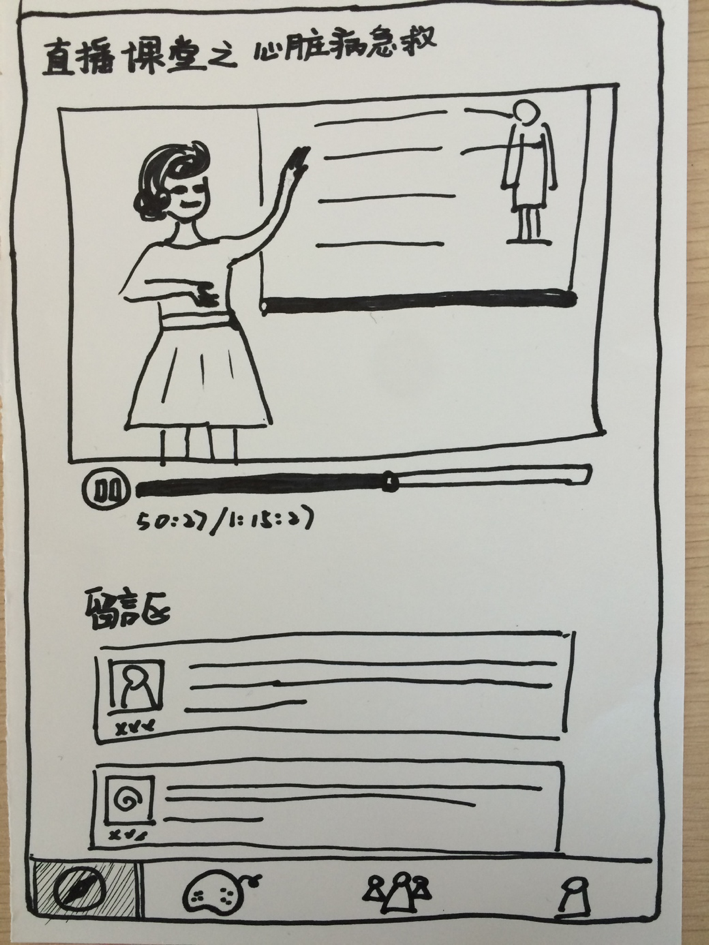 直播课堂之 心脏病急救
50:27/1:15:27
留言区
xxx
xxx